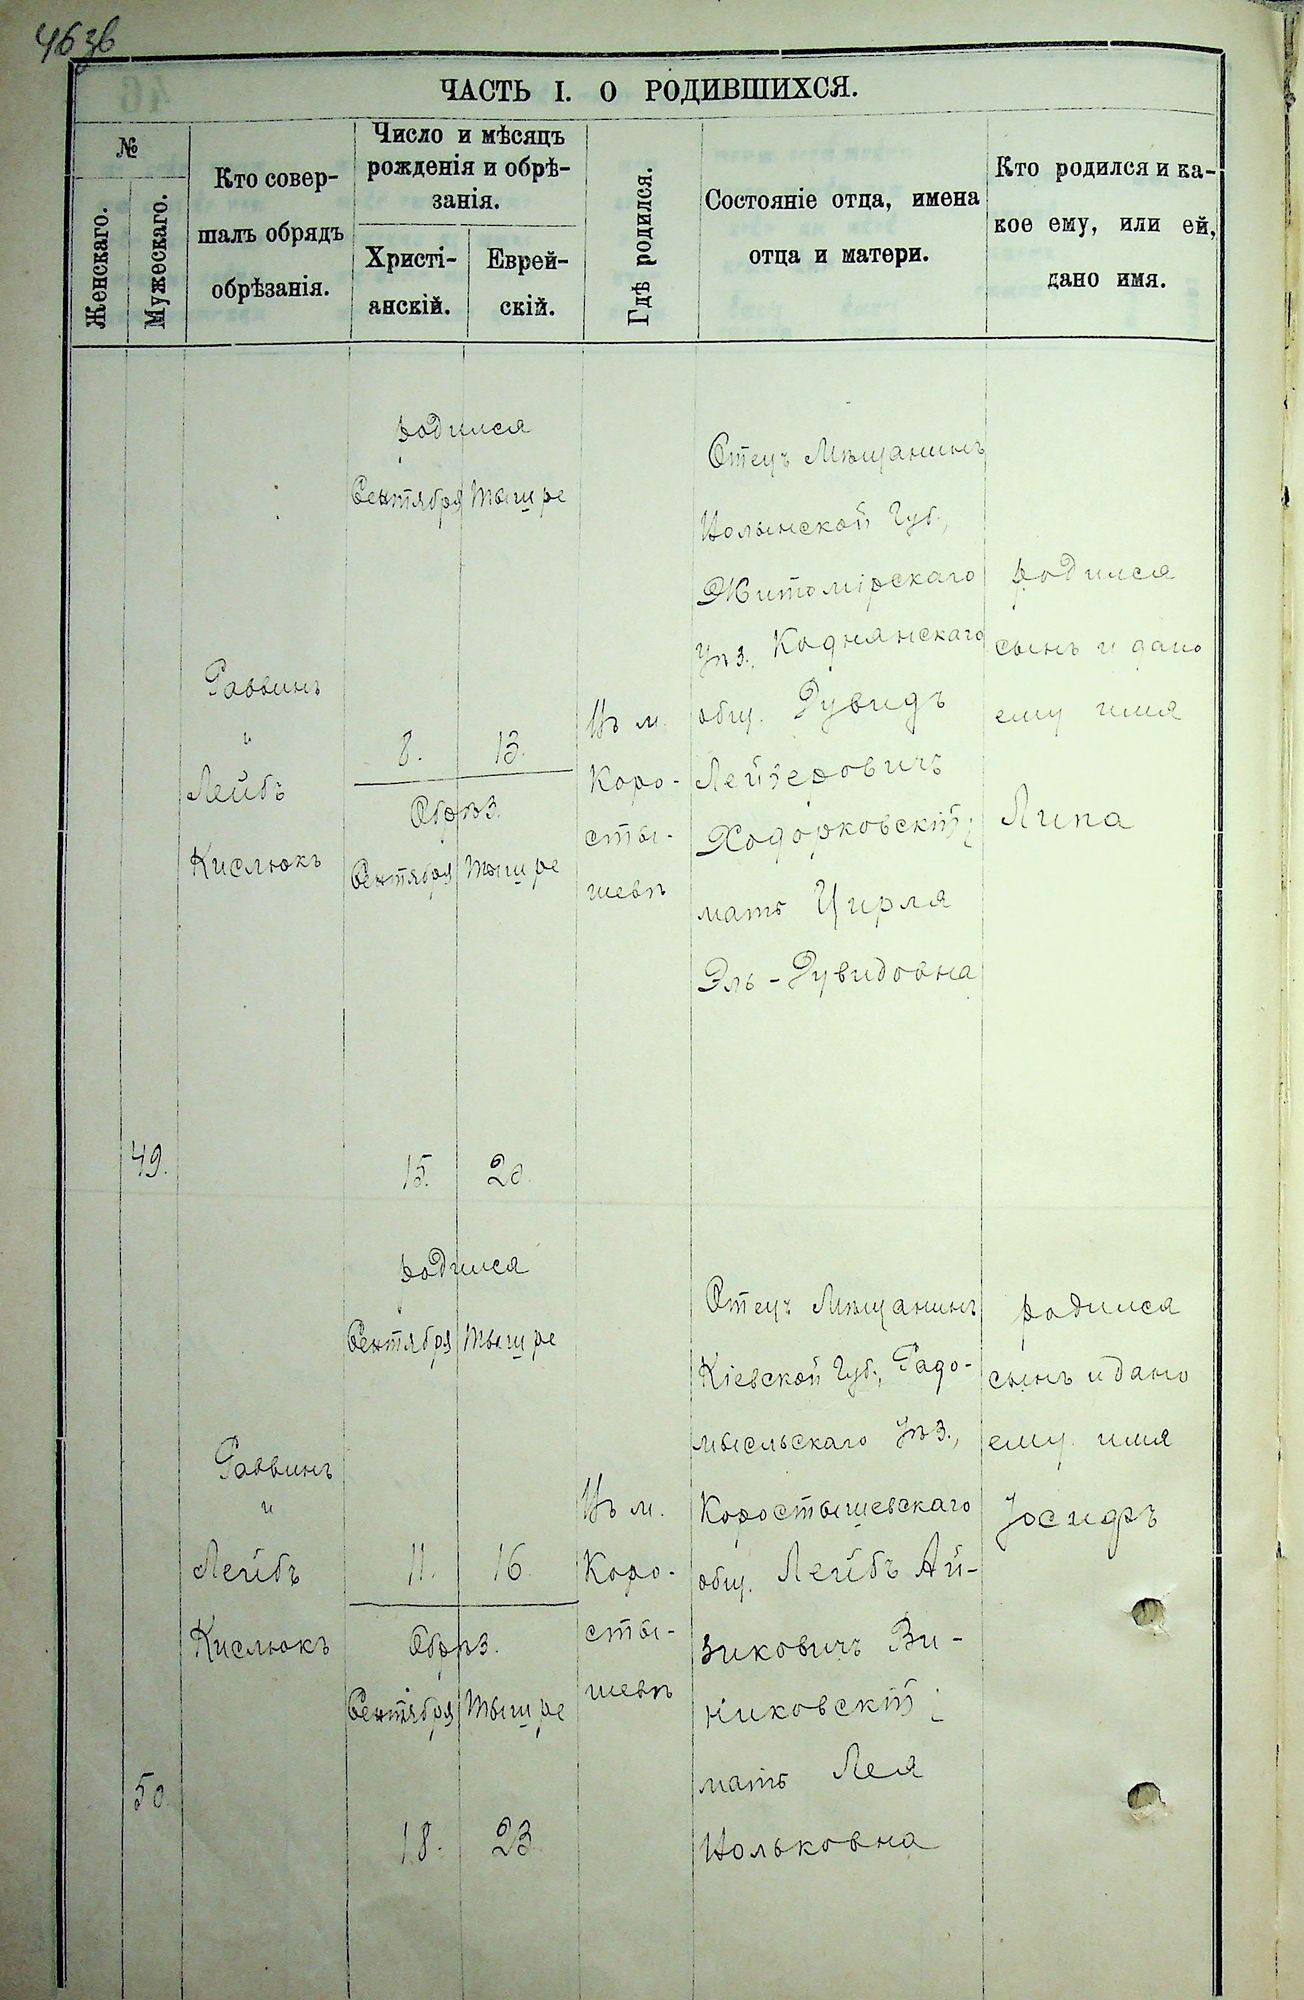 46 зв
ЧАСТЬ I. О РОДИВШИХСЯ.
№
Женскаго.
Мужескаго.
Кто совер-
шалъ обрядъ
обрѣзанія.
Число и мѣсяцъ
рожденія и обрѣ-
занія.
Христі-
анскій.
Еврей-
скій.
Гдѣ родился.
Состояніе отца, имена
отца и матери.
Кто родился и ка-
кое ему, или ей,
дано имя.
49.
Раввинъ
и
Лейбъ
Кислюкъ
родился
Сентября Тышре
8. 13.
Обрѣз.
Сентября Тышре
15. 20.
Въ м.
Коро-
сты-
шевѣ
Отецъ Мѣщанинъ
Волынской Губ.,
Житомірскаго
Уѣз., Коднянскаго
общ. Дувидъ
Лейзеровичъ
Ходорковскій;
мать Цирля
Эль-Дувидовна
родился
сынъ и дано
ему имя
Липа
50.
Раввинъ
и
Лейбъ
Кислюкъ
родился
Сентября Тышре
11. 16.
Обрѣз.
Сентября Тышре
18. 23.
Въ м.
Коро-
сты-
шевѣ
Отецъ Мѣщанинъ
Кіевской Губ., Радо-
мысльскаго Уѣз.,
Коростышевскаго
общ. Лейбъ Ай-
зиковичъ Ви-
никовскій;
мать Лея
Вольковна
родился
сынъ и дано
ему имя
Іосифъ